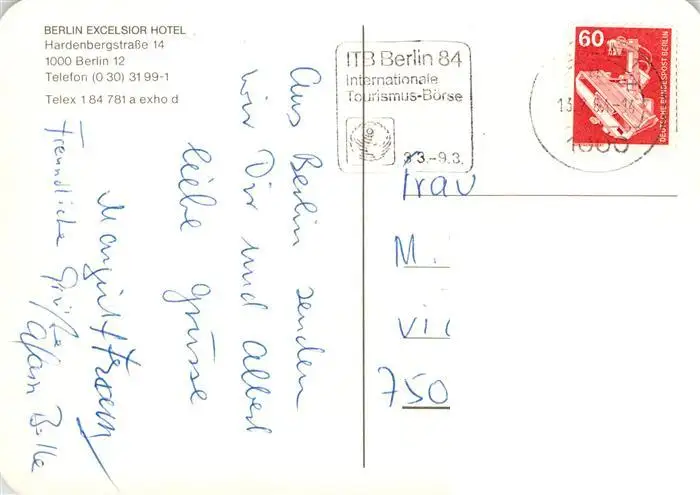 BERLIN EXCELSIOR HOTEL
Hardenbergstraße 14
1000 Berlin 12
Telefon (0 30) 31 99-1
Telex 1 84 781 a exho d
ITB Berlin 84
Internationale
Tourismus-Börse
3.-9.3.
60
DEUTSCHE BUNDESPOST BERLIN
1000
Aus Berlin senden
wir Dir und Albert
liebe Grüsse
Margirt +
Freundliche Grüße
Frau
M.
Vi
750